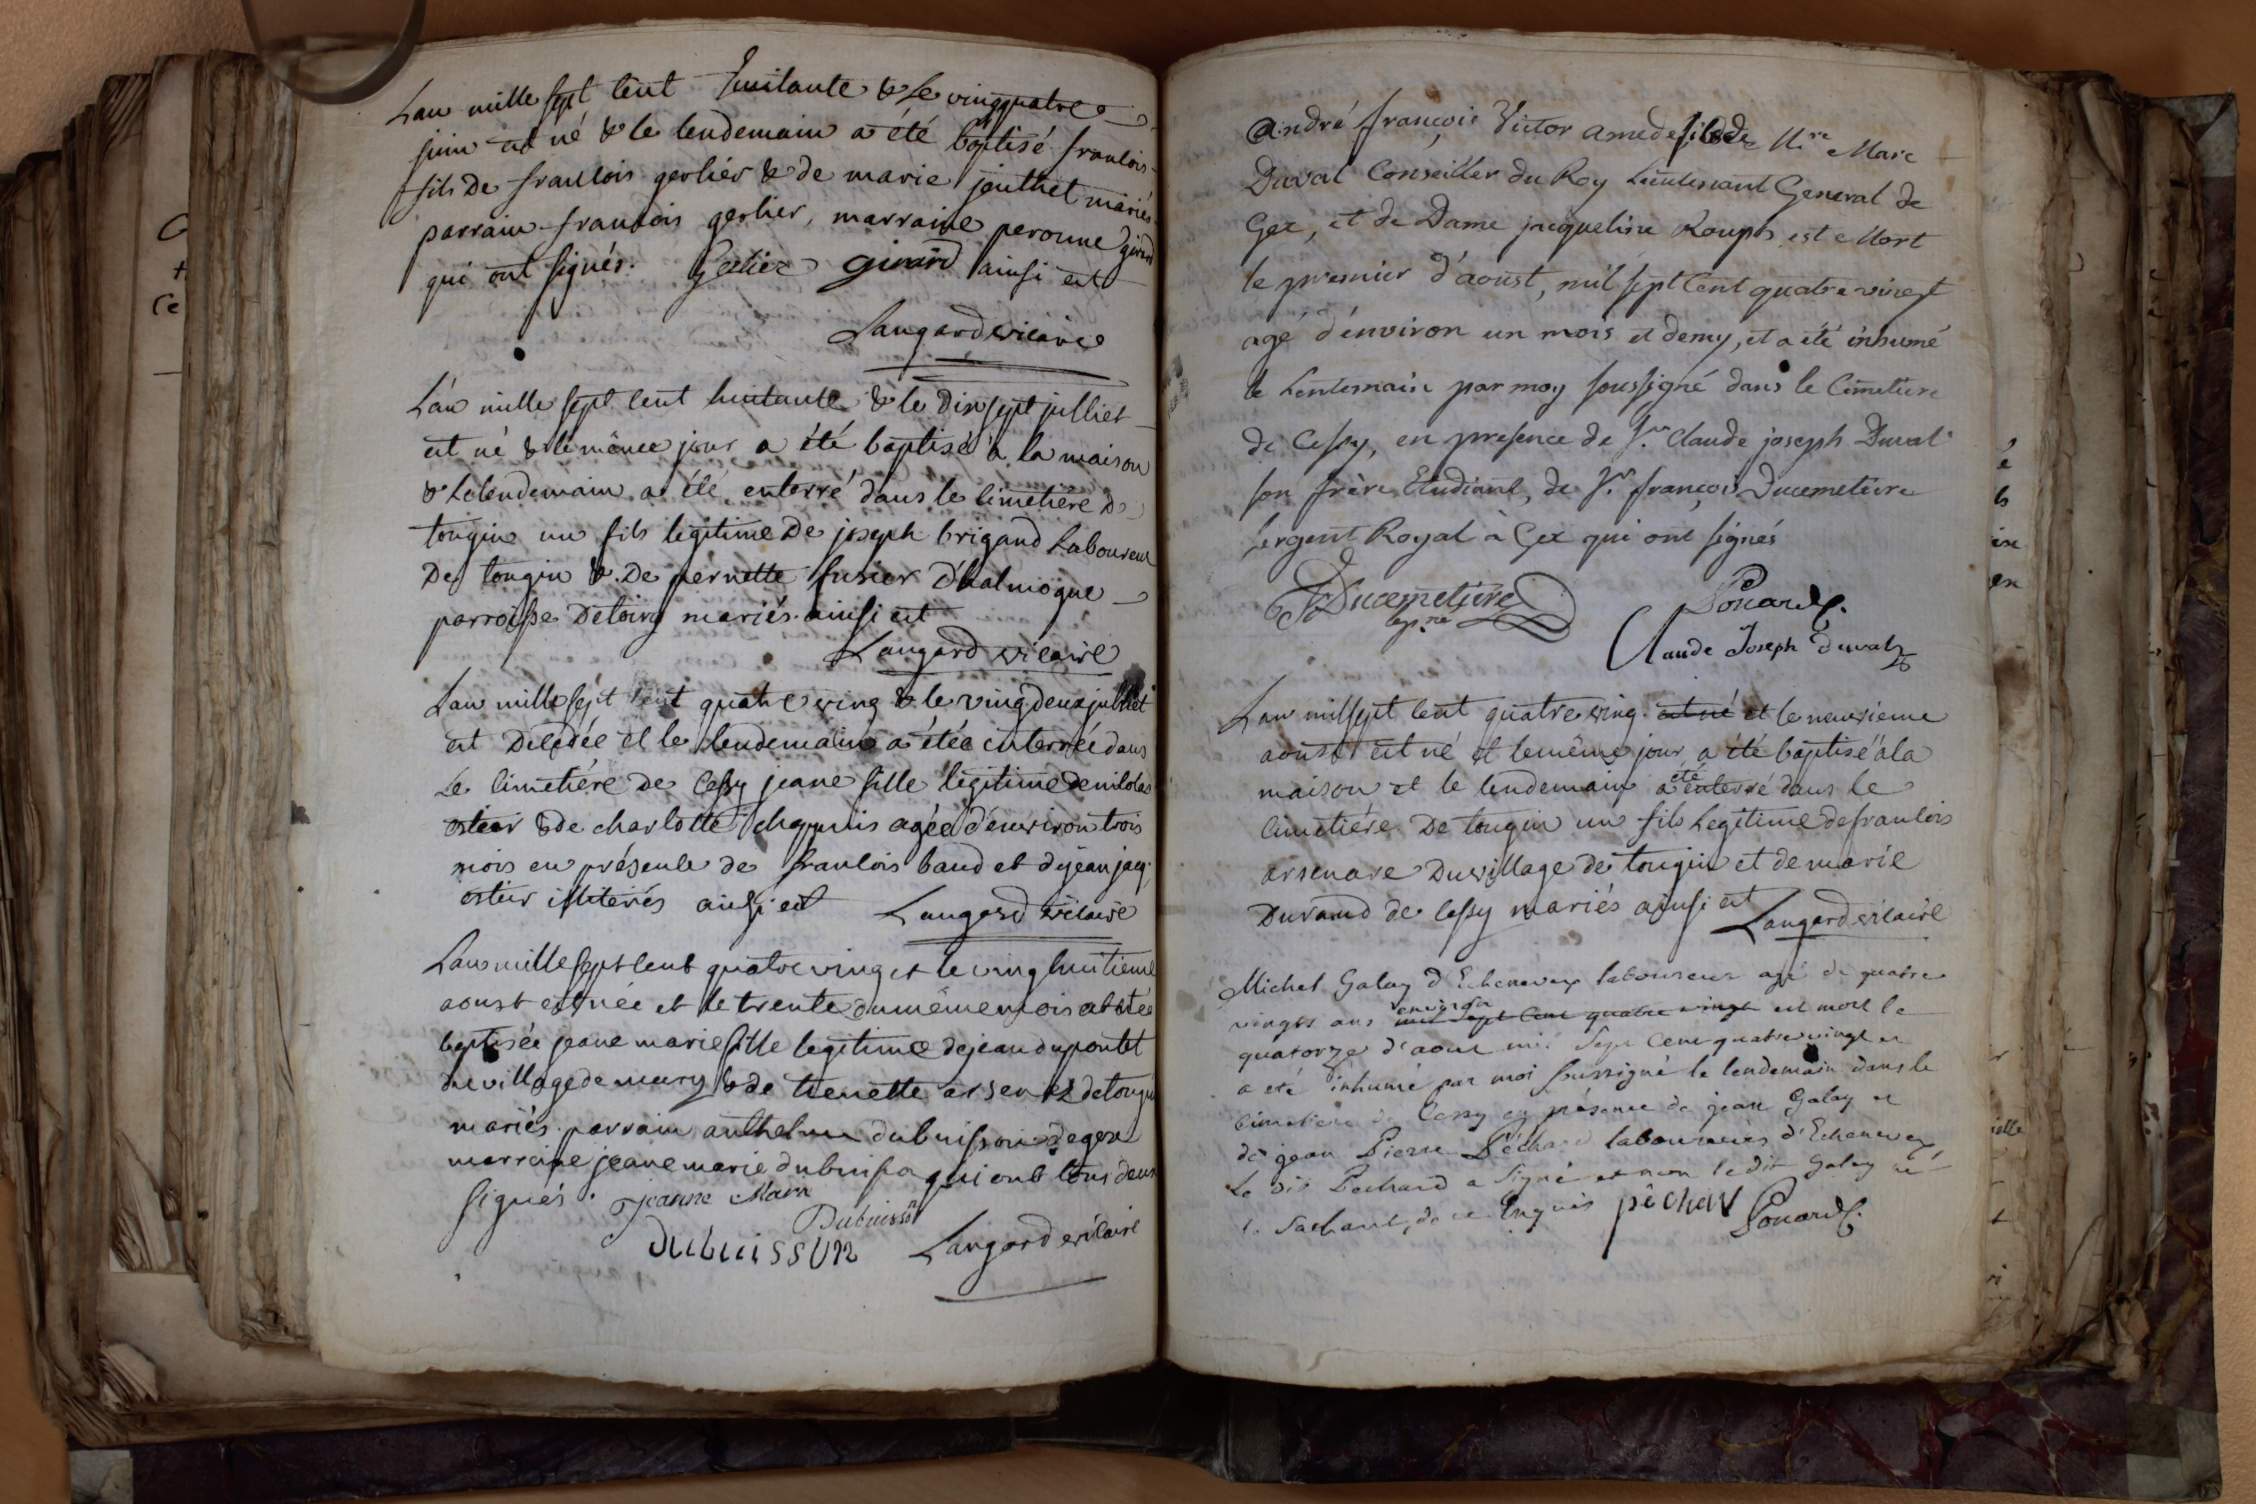 Lan mille sept cent huitante & le vingquatre
juin est né & le lendemain a été baptisé francois
fils De francois gerlier & de marie jouthet mariés
parrain francois gerlier, marraine peronne girard
qui ont signés. Gerlier girard ainsi est
Laugard vicaire
L'an mille sept cent huitante & le dixsept julliet
est né & le même jour a été baptisé à la maison
& le lendemain a été enterré dans le cimetiére De
tougin un fils legitime De joseph brigand Laboureur
De tougin & De pernette fusier D'halmogne
parroisse De toiry mariés. ainsi est
Laugard vicaire
Lan mille sept cent quatre ving & le vingdeux julliet
est Decedée et le lendemain a étée enterrée dans
Le cimetiére De Cessy jeane fille légitime de nicolas
ostier & de charlotte chapuis agée d'environ trois
mois en présence de francois baud et de jean jacq.
ostier illiterés ainsi est Laugard vicaire
Lan mille sept cent quatre ving et le ving huitieme
aoust est née et le trente du même mois at etée
baptisée jeane marie fille legitime de jean dupontet
du village de mury & de tienette arsenez de tougin
mariés. parrain anthelme dubuisson de gex
marraine jeane marie dubuisson qui ont tous deux
signés. jeanne Marie
Dubuisson
DUBUISSON Laugard vicaire
André françois Victor amede fils de Mre Marc
Duval Conseiller du Roy Lieutenant General de
Gex, et de Dame jacqueline Rouph est Mort
le premier d'aoust, mil sept Cent quatre vingt
agé d'environ un mois et demy, et a été inhumé
le Lentemain par moy soussigné dans le Cimetiere
de Cessy, en presence de Sr. Claude joseph Duval
son frère Etudiant, de Sr. françois Ducemetiere
sergent Royal à Gex qui ont signés
Ducemetiére
Pouard
Claude Joseph duval
Lan mil sept cent quatre ving. est né et le neuvieme
aoust est né et le même jour a été baptisé à la
maison et le lendemain a été enterré dans le
cimetiére De tougin un fils Legitime de francois
arsenare Du village de tougin et de marie
Durand de cessy mariés ainsi est
Laugard vicaire
Michel Galay d'Echenevex laboureur agé de quatre
vingts ans environ mil sept Cent quatre vingt est mort le
quatorze d'aout mil Sept Cent quatre vingt et
a eté inhumé par moi soussigné le lendemain dans le
cimetiere de Cessy en présence de jean Galay et
de jean Pierre Péchard laboureurs d'Echenevex
Le dit Pechard a signé et non le dit Galay né
Sachant, de ce Enquis pêchar Pouard